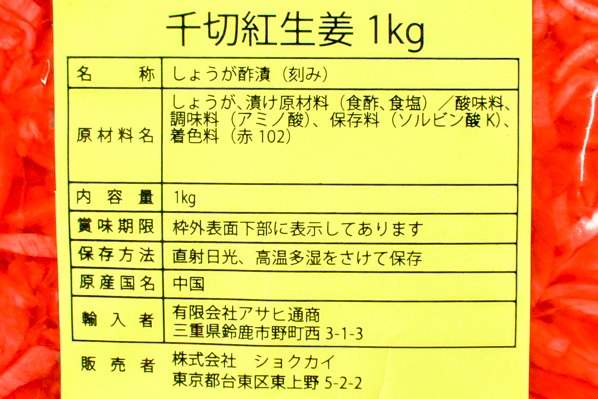 千切紅生姜 1kg
名称 しょうが酢漬（刻み）
原材料名 しょうが、漬け原材料（食酢、食塩）／酸味料、
調味料（アミノ酸）、保存料（ソルビン酸K）、
着色料（赤102）
内容量 1kg
賞味期限 枠外表面下部に表示してあります
保存方法 直射日光、高温多湿をさけて保存
原産国名 中国
輸入者 有限会社アサヒ通商
三重県鈴鹿市野町西 3-1-3
販売者 株式会社 ショクカイ
東京都台東区東上野 5-2-2